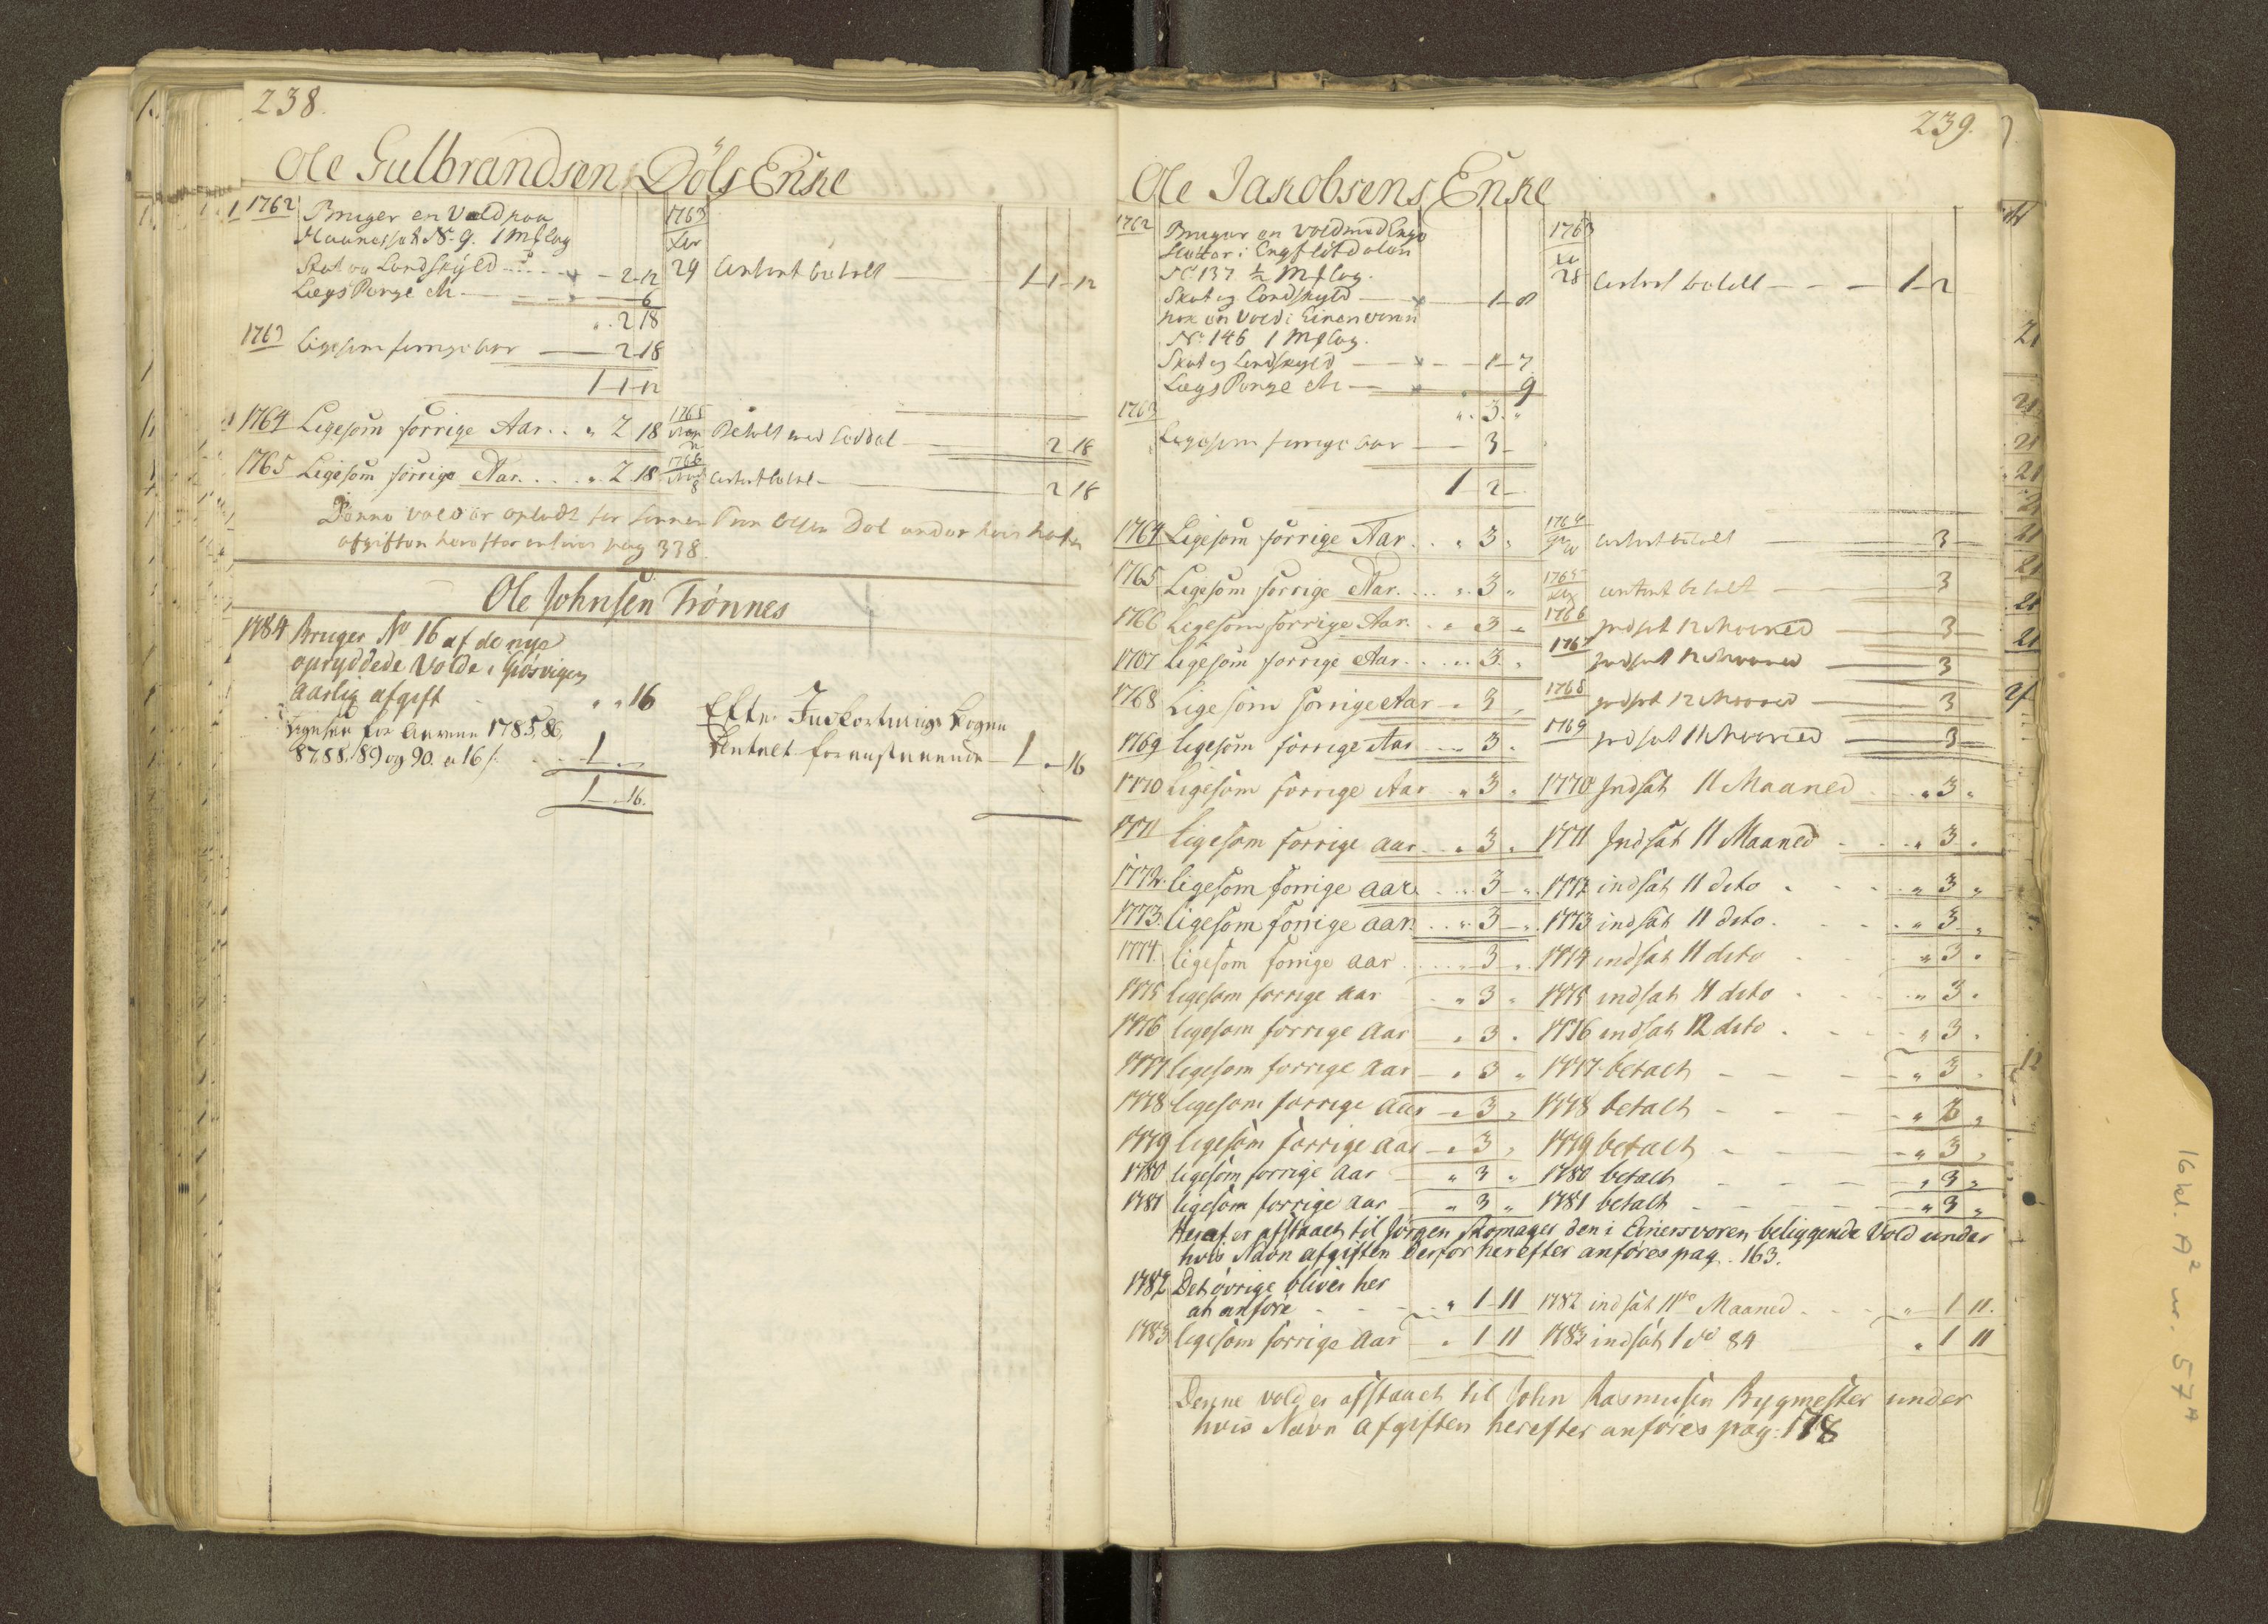 238.
Ole Gulbrandsen Döls Enke
1762 Bruger en Vold paa 1763
N. 9. 1 Mflag
Skat og Landskyld 2-12 29 Contant betalt 1-1-12
Lægs Penge 6
" 2 18
1763 Ligesom forrige aar 2-18
1-1-12
1764 Ligesom forrige Aar . . " 2 18 1765 Betalt med Seddel 2 18
1765 Ligesom forrige Aar . . . " 2 18 1766 8 Contant betalt 2 18
Denne Vold er opladt for Sønnen Olsen Döl under hvis
afgiften herefter anføres pag 338.
Ole Johnsen Trönnes
1784 Bruger No 16 af de nye
opryddede Volde i Giösvigen
aarlig afgift " " 16
Ligesaa for Aarene 1785, 86,
87, 88, 89 og 90. a 16 s. 1 " "
1 - " 16.
Efter Bogen
betalt foranstaaende 1 " 16
239.
Ole Jakobsens Enke
1762 Bruger en Vold med Enge 1763
Sletter i Engfletdalen
No 137 ½ Mflag. 28 Contant betalt 1-2
Skat og Landskyld 1-8
nok en Vold i Einersvoren
No 146 1 Mflag.
Skat og Landskyld 1-7
Lægs Penge 9
1763 " 3 "
Ligesom forrige aar 3 -
1 2 -
1764 Ligesom forrige Aar . . " 3 " 1764 Contant betalt 3
1765 Ligesom forrige Aar . . . " 3 " 1765 contant betalt 3
1766 Ligesom forrige Aar . . " 3 " 1766 Indsat 12 Maaned 3
1767 Ligesom forrige Aar . . . " 3 " 1767 Indsat 12 Maaned 3
1768 Ligesom forrige Aar " 3 " 1768 Indsat 12 Maaned 3
1769 ligesom forrige Aar " 3 " 1769 Indsat 11 Maaned 3
1770 Ligesom forrige Aar " 3 " 1770 Indsat 11 Maaned " 3 "
1771 ligesom forrige aar " 3 " 1771 Indsat 11 Maaned " 3 "
1772. ligesom forrige aar " 3 " 1772 indsat 11 dito " 3 "
1773. ligesom forrige aar " 3 " 1773 indsat 11 dito " 3 "
1774. ligesom forrige aar " 3 " 1774 indsat 11 dito " 3 "
1775 ligesom forrige aar " 3 " 1775 indsat 11 dito " 3 "
1776 ligesom forrige aar " 3 " 1776 indsat 12 dito " 3 "
1777 ligesom forrige aar " 3 " 1777 betalt " 3 "
1778 ligesom forrige aar " 3 " 1778 betalt " 3 "
1779 ligesom forrige aar " 3 " 1779 betalt " 3 "
1780 ligesom forrige aar " 3 " 1780 betalt " 3 "
1781 ligesom forrige aar " 3 " 1781 betalt " 3 "
Heraf er afstaaet til Jörgen Skomager den i Einersvoren beliggende Vold under
hvis Navn afgiften derfor herefter anföres pag. 163.
1782 Det övrige bliver her
at anföre " 1 11 1782 indsat 11te Maaned " 1 11.
1783 ligesom forrige aar " 1 11 1783 indsat 1 di 84 " 1 11
Denne vold er afstaaet til John Rasmusen Bygmester under
hvis Navn afgiften herefter anföres pag: 178
16 kl. A² nr. 57A